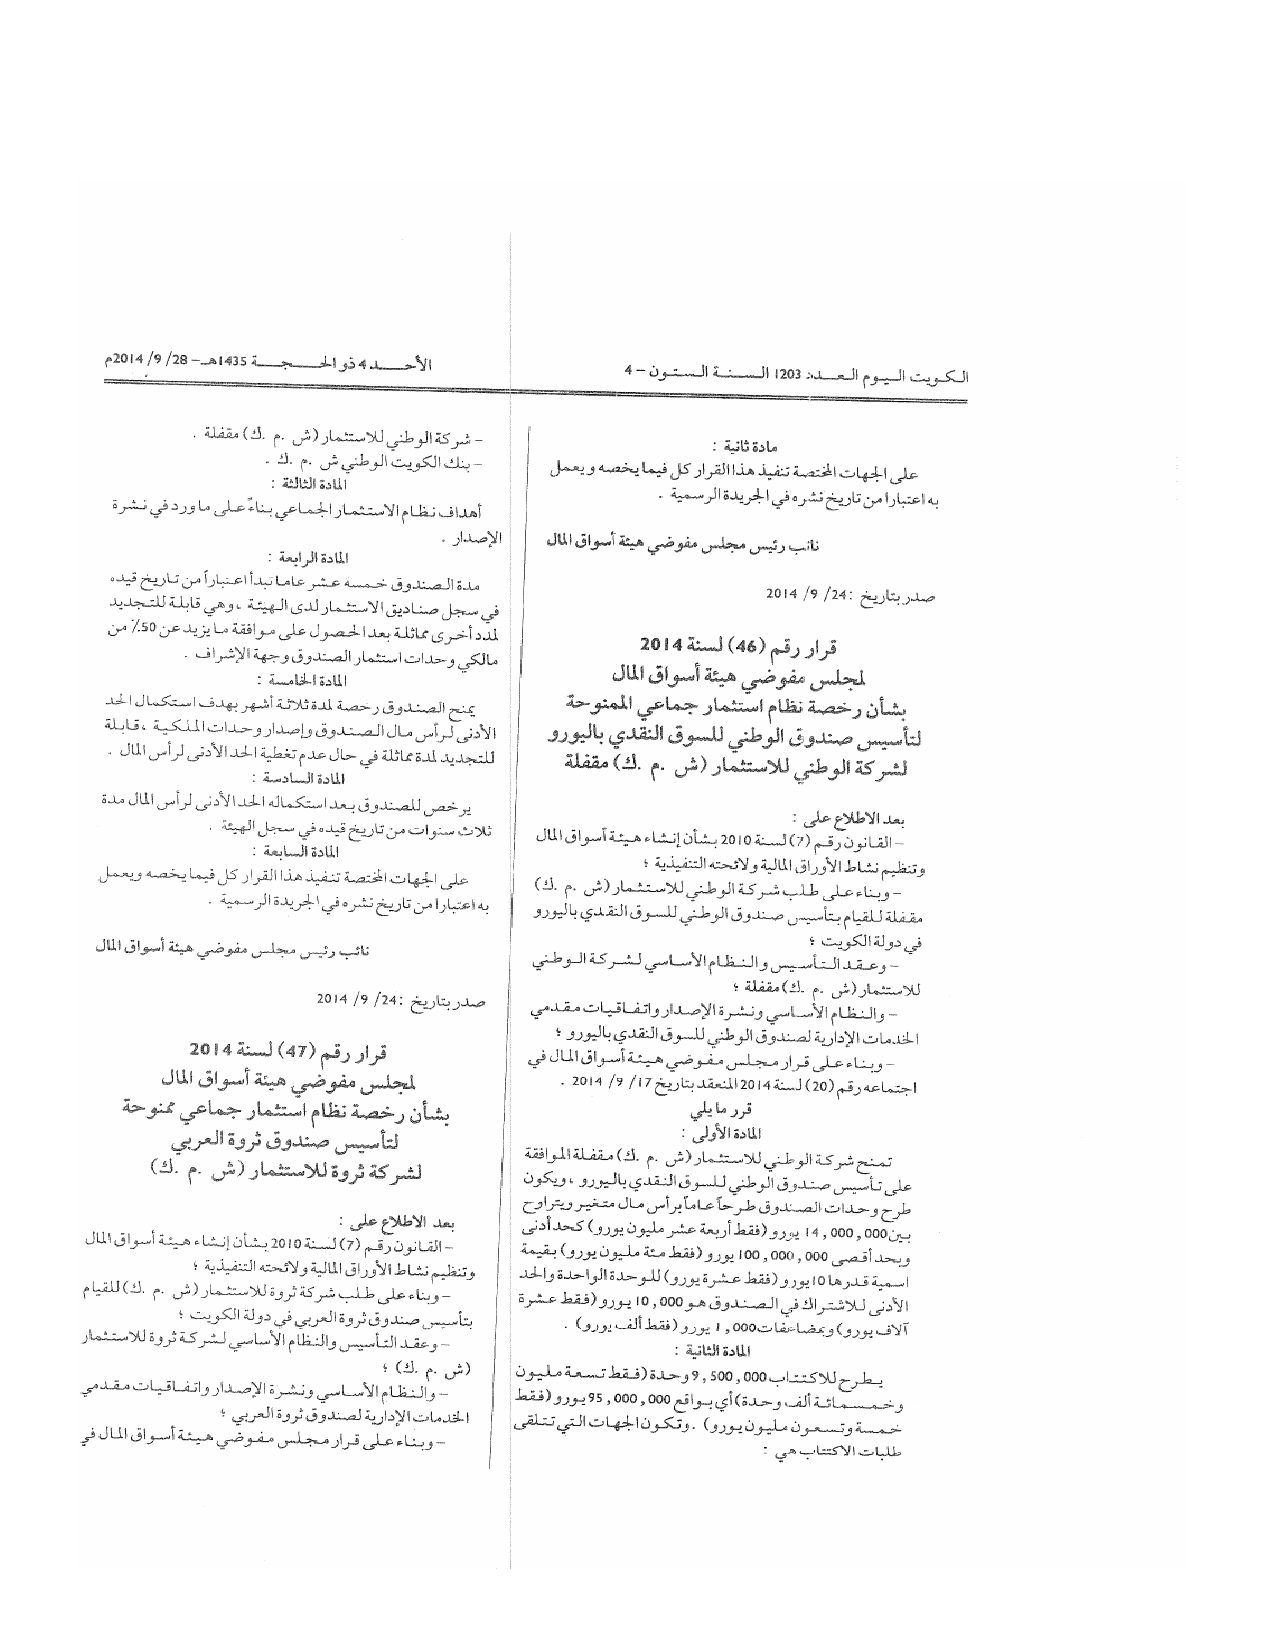 الكويت اليوم العدد 1203 السنة الستون – 4
الأحد 4 ذو الحجة 1435هـ – 28/ 9/ 2014م
مادة ثانية :
على الجهات المختصة تنفيذ هذا القرار كل فيما يخصه ويعمل
به اعتبارا من تاريخ نشره في الجريدة الرسمية .
نائب رئيس مجلس مفوضي هيئة أسواق المال
صدر بتاريخ : 24/ 9/ 2014
قرار رقم (46) لسنة 2014
لمجلس مفوضي هيئة أسواق المال
بشأن رخصة نظام استثمار جماعي الممنوحة
لتأسيس صندوق الوطني للسوق النقدي باليورو
لشركة الوطني للاستثمار (ش .م .ك) مقفلة
بعد الاطلاع على :
– القانون رقم (7) لسنة 2010 بشأن إنشاء هيئة أسواق المال
وتنظيم نشاط الأوراق المالية ولائحته التنفيذية ؛
– وبناء على طلب شركة الوطني للاستثمار (ش .م .ك)
مقفلة للقيام بتأسيس صندوق الوطني للسوق النقدي باليورو
في دولة الكويت ؛
– وعقد التأسيس والنظام الأساسي لشركة الوطني
للاستثمار (ش .م .ك) مقفلة ؛
– والنظام الأساسي ونشرة الإصدار واتفاقيات مقدمي
الخدمات الإدارية لصندوق الوطني للسوق النقدي باليورو ؛
– وبناء على قرار مجلس مفوضي هيئة أسواق المال في
اجتماعه رقم (20) لسنة 2014 المنعقد بتاريخ 17/ 9/ 2014 .
قرر ما يلي
المادة الأولى :
تمنح شركة الوطني للاستثمار (ش .م .ك) مقفلة الموافقة
على تأسيس صندوق الوطني للسوق النقدي باليورو ، ويكون
طرح وحدات الصندوق طرحاً عاماً برأس مال متغير ويتراوح
بين 14,000,000 يورو (فقط أربعة عشر مليون يورو) كحد أدنى
وبحد أقصى 100,000,000 يورو (فقط مئة مليون يورو) بقيمة
اسمية قدرها 10 يورو (فقط عشرة يورو) للوحدة الواحدة والحد
الأدنى للاشتراك في الصندوق هو 10,000 يورو (فقط عشرة
آلاف يورو) وبمضاعفات 1,000 يورو (فقط ألف يورو) .
المادة الثانية :
يطرح للاكتتاب 9,500,000 وحدة (فقط تسعة مليون
وخمسمائة ألف وحدة) أي بواقع 95,000,000 يورو (فقط
خمسة وتسعون مليون يورو) . وتكون الجهات التي تتلقى
طلبات الاكتتاب هي :
– شركة الوطني للاستثمار (ش .م .ك) مقفلة .
– بنك الكويت الوطني ش .م .ك .
المادة الثالثة :
أهداف نظام الاستثمار الجماعي بناءً على ما ورد في نشرة
الإصدار .
المادة الرابعة :
مدة الصندوق خمسه عشر عاما تبدأ اعتباراً من تاريخ قيده
في سجل صناديق الاستثمار لدى الهيئة ، وهي قابلة للتجديد
لمدد أخرى مماثلة بعد الحصول على موافقة ما يزيد عن 50% من
مالكي وحدات استثمار الصندوق وجهة الإشراف .
المادة الخامسة :
يمنح الصندوق رخصة لمدة ثلاثة أشهر بهدف استكمال الحد
الأدنى لرأس مال الصندوق وإصدار وحدات الملكية ، قابلة
للتجديد لمدة مماثلة في حال عدم تغطية الحد الأدنى لرأس المال .
المادة السادسة :
يرخص للصندوق بعد استكماله الحد الأدنى لرأس المال مدة
ثلاث سنوات من تاريخ قيده في سجل الهيئة .
المادة السابعة :
على الجهات المختصة تنفيذ هذا القرار كل فيما يخصه ويعمل
به اعتبارا من تاريخ نشره في الجريدة الرسمية .
نائب رئيس مجلس مفوضي هيئة أسواق المال
صدر بتاريخ : 24/ 9/ 2014
قرار رقم (47) لسنة 2014
لمجلس مفوضي هيئة أسواق المال
بشأن رخصة نظام استثمار جماعي ممنوحة
لتأسيس صندوق ثروة العربي
لشركة ثروة للاستثمار (ش .م .ك)
بعد الاطلاع على :
– القانون رقم (7) لسنة 2010 بشأن إنشاء هيئة أسواق المال
وتنظيم نشاط الأوراق المالية ولائحته التنفيذية ؛
– وبناء على طلب شركة ثروة للاستثمار (ش .م .ك) للقيام
بتأسيس صندوق ثروة العربي في دولة الكويت ؛
– وعقد التأسيس والنظام الأساسي لشركة ثروة للاستثمار
(ش .م .ك) ؛
– والنظام الأساسي ونشرة الإصدار واتفاقيات مقدمي
الخدمات الإدارية لصندوق ثروة العربي ؛
– وبناء على قرار مجلس مفوضي هيئة أسواق المال في